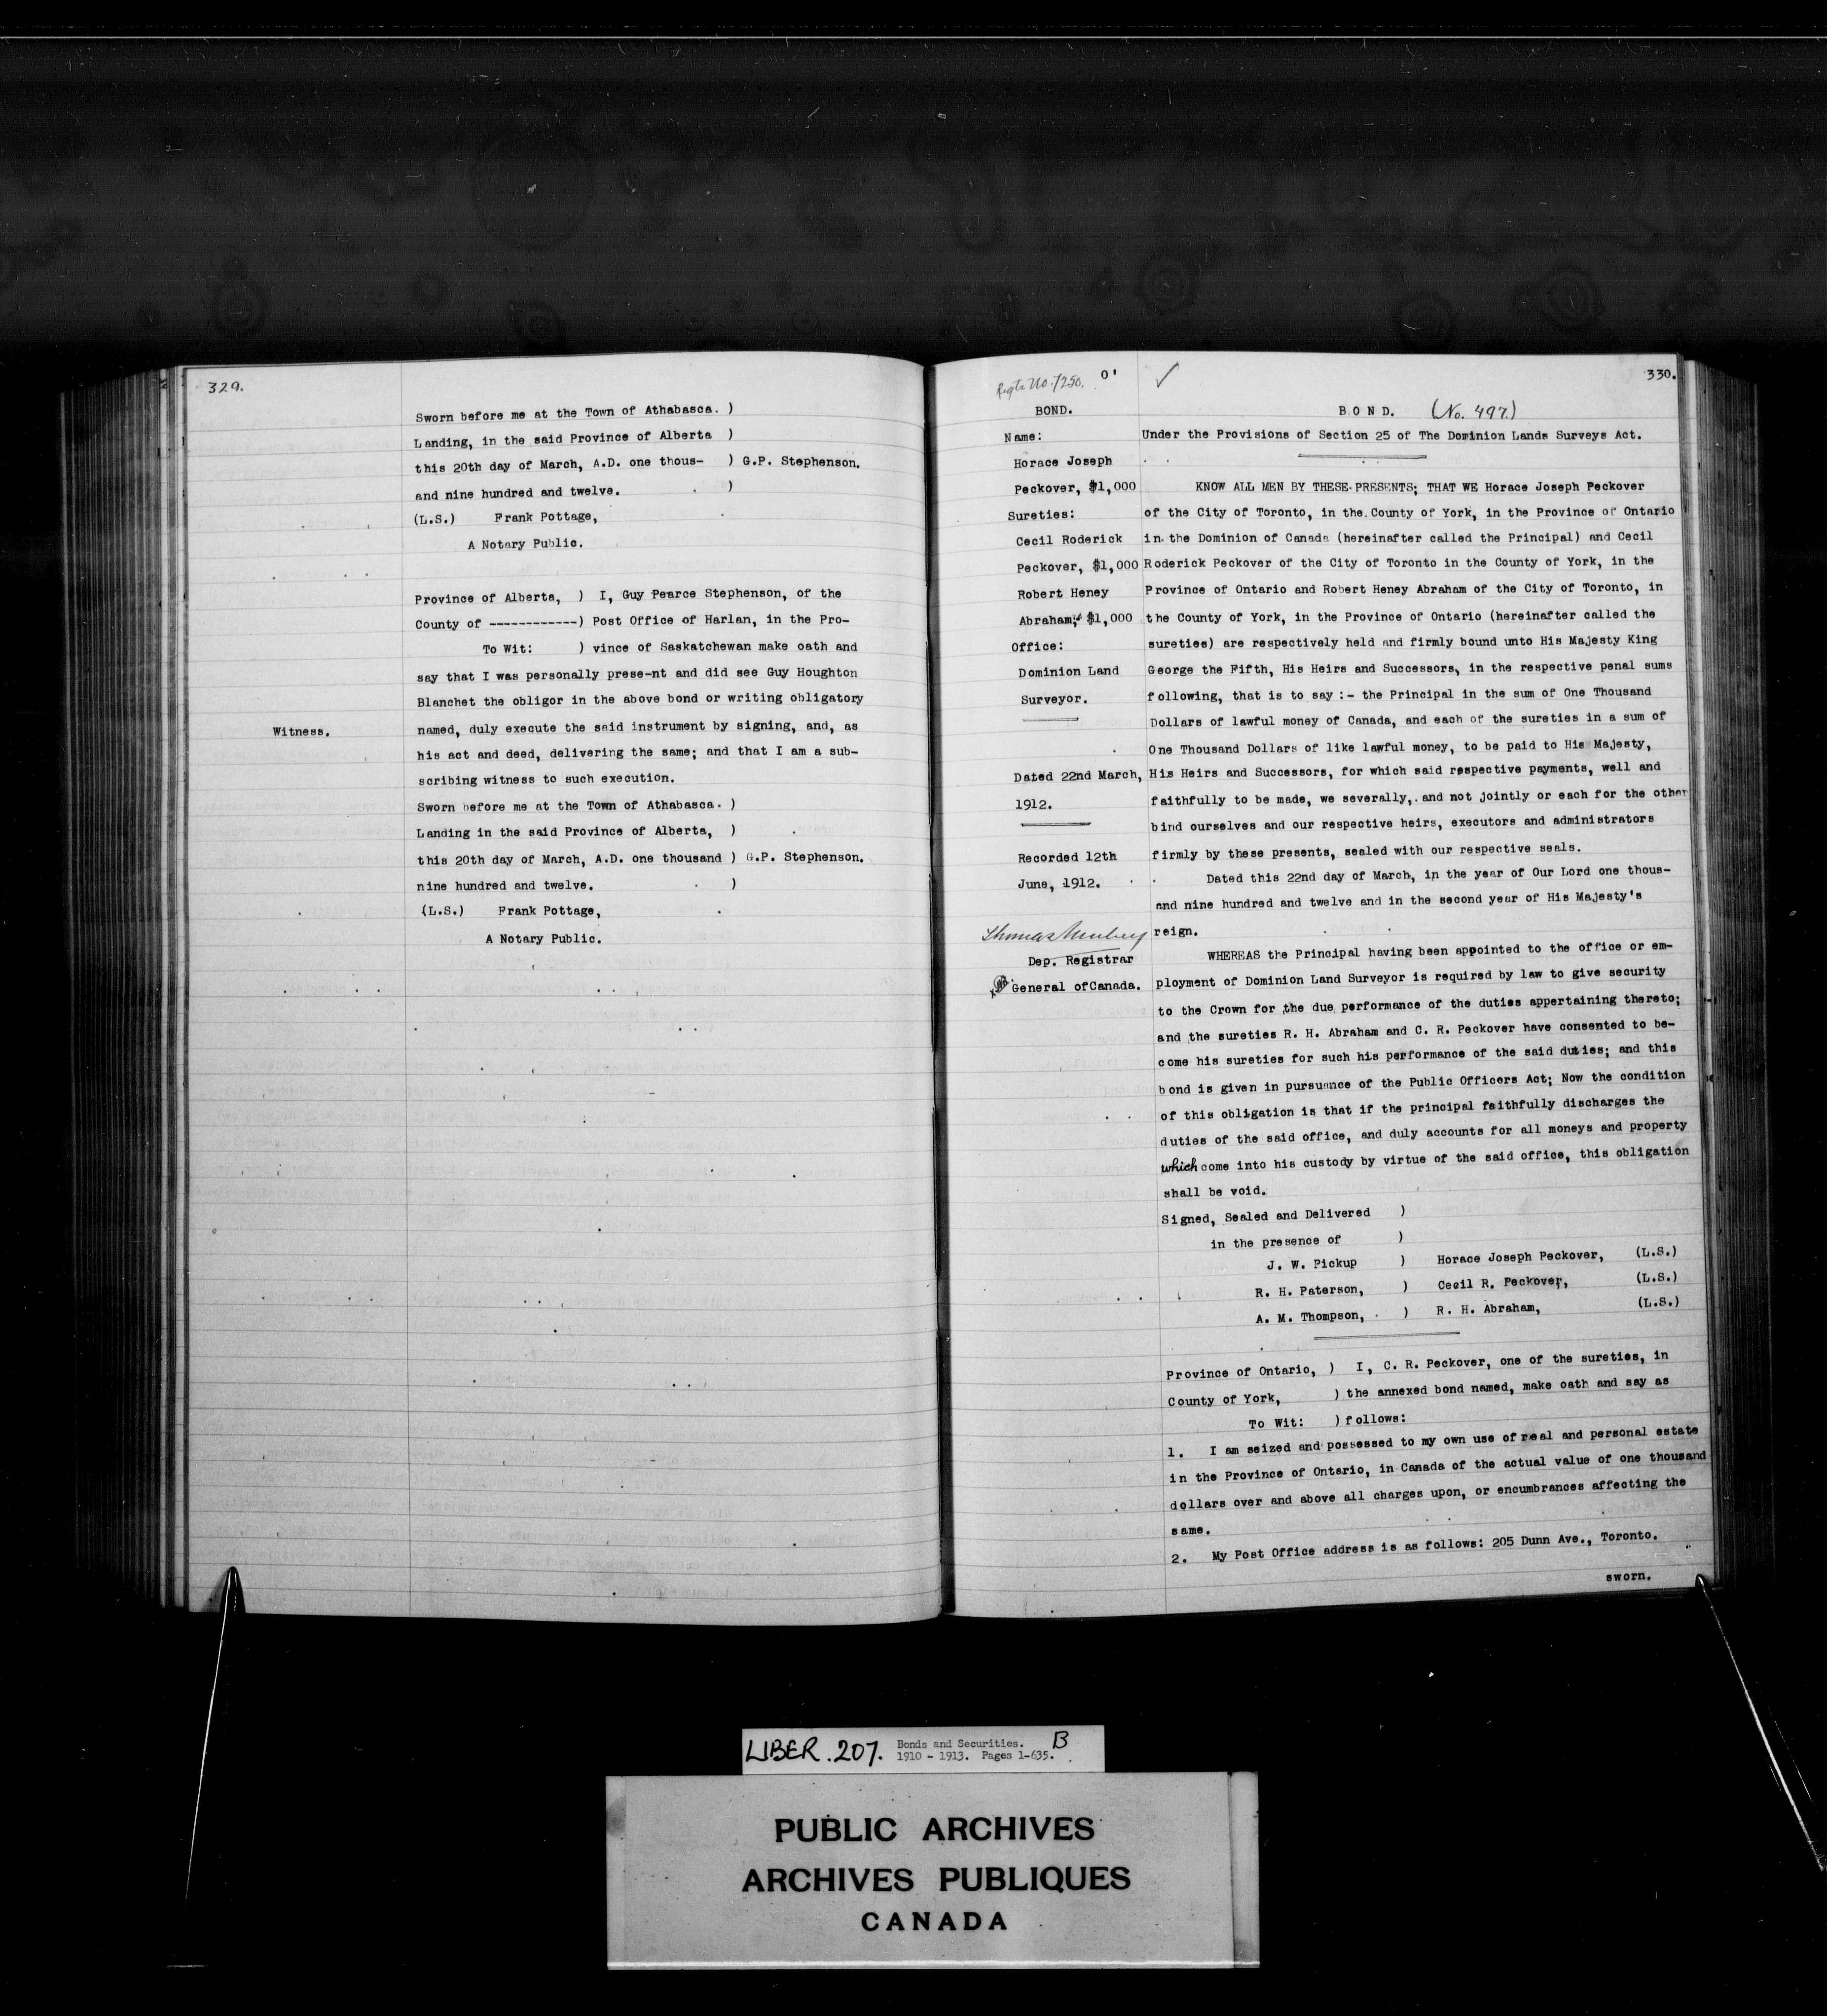 329.
Sworn before me at the Town of Athabasca. )
Landing, in the said Province of Alberta )
this 20th day of March, A.D. one thous- ) G.P. Stephenson.
and nine hundred and twelve. )
(L.S.) Frank Pottage,
A Notary Public.
Province of Alberta, ) I, Guy Pearce Stephenson, of the
County of ------------) Post Office of Harlan, in the Pro-
To Wit: ) vince of Saskatchewan make oath and
say that I was personally prese-nt and did see Guy Houghton
Blanchet the obligor in the above bond or writing obligatory
Witness. named, duly execute the said instrument by signing, and, as
his act and deed, delivering the same; and that I am a sub-
scribing witness to such execution.
Sworn before me at the Town of Athabasca. )
Landing in the said Province of Alberta, )
this 20th day of March, A.D. one thousand ) G.P. Stephenson.
nine hundred and twelve. )
(L.S.) Frank Pottage,
A Notary Public.
Regtr No. 1250. O'
BOND.
Name:
Horace Joseph
Peckover, $1,000
Sureties:
Cecil Roderick
Peckover, $1,000
Robert Heney
Abraham, $1,000
Office:
Dominion Land
Surveyor.
Dated 22nd March,
1912.
Recorded 12th
June, 1912.
Thomas Mulvey
Dep. Registrar
General ofCanada.
330.
B O N D. (No. 497.)
Under the Provisions of Section 25 of The Dominion Lands Surveys Act.
KNOW ALL MEN BY THESE PRESENTS; THAT WE Horace Joseph Peckover
of the City of Toronto, in the County of York, in the Province of Ontario
in the Dominion of Canada (hereinafter called the Principal) and Cecil
Roderick Peckover of the City of Toronto in the County of York, in the
Province of Ontario and Robert Heney Abraham of the City of Toronto, in
the County of York, in the Province of Ontario (hereinafter called the
sureties) are respectively held and firmly bound unto His Majesty King
George the Fifth, His Heirs and Successors, in the respective penal sums
following, that is to say :- the Principal in the sum of One Thousand
Dollars of lawful money of Canada, and each of the sureties in a sum of
One Thousand Dollars of like lawful money, to be paid to His Majesty,
His Heirs and Successors, for which said respective payments, well and
faithfully to be made, we severally, and not jointly or each for the other
bind ourselves and our respective heirs, executors and administrators
firmly by these presents, sealed with our respective seals.
Dated this 22nd day of March, in the year of Our Lord one thous-
and nine hundred and twelve and in the second year of His Majesty's
reign.
WHEREAS the Principal having been appointed to the office or em-
ployment of Dominion Land Surveyor is required by law to give security
to the Crown for the due performance of the duties appertaining thereto;
and the sureties R. H. Abraham and C. R. Peckover have consented to be-
come his sureties for such his performance of the said duties; and this
bond is given in pursuance of the Public Officers Act; Now the condition
of this obligation is that if the principal faithfully discharges the
duties of the said office, and duly accounts for all moneys and property
which come into his custody by virtue of the said office, this obligation
shall be void.
Signed, Sealed and Delivered )
in the presence of )
J. W. Pickup ) Horace Joseph Peckover, (L.S.)
R. H. Paterson, ) Cecil R. Peckover, (L.S.)
A. M. Thompson, ) R. H. Abraham, (L.S.)
Province of Ontario, ) I, C. R. Peckover, one of the sureties, in
County of York, ) the annexed bond named, make oath and say as
To Wit: ) follows:
1. I am seized and possessed to my own use of real and personal estate
in the Province of Ontario, in Canada of the actual value of one thousand
dollars over and above all charges upon, or encumbrances affecting the
same.
2. My Post Office address is as follows: 205 Dunn Ave., Toronto.
sworn.
LIBER. 207. Bonds and Securities. B
1910 - 1913. Pages 1-635.
PUBLIC ARCHIVES
ARCHIVES PUBLIQUES
CANADA